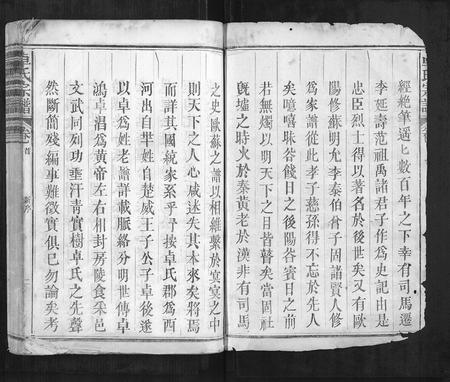 經絶筆遥匕數百年之下幸有司馬遷
李延壽范祖禹諸君子作爲史記由是
忠臣烈士得以著名於後世矣又有歐
陽修蘇明允李泰伯曾子固諸賢人修
爲家譜從此孝子慈孫得不忘於先人
矣噫嘻昧谷餞日之後陽谷賓日之前
若無燭以明天下之目皆瞽矣當固社
既墟之時火於秦黄老於漢非有司馬
之史歐蘇之譜以相維繫於冥冥之中
則天下之人心咸迷失其本來矣將焉
而詳其國統家系乎予按卓氏郡爲西
河出自芈姓自楚威王子公子卓後遂
以卓爲姓老譜詳載脈絡分明世傳卓
鴻卓滔爲黄帝左右相封房陵食采邑
文武同列功垂汗青實樹卓氏之先聲
然斷簡殘編事難徵實俱已勿論矣考
卓氏宗譜
卷首
新序
卓氏宗譜